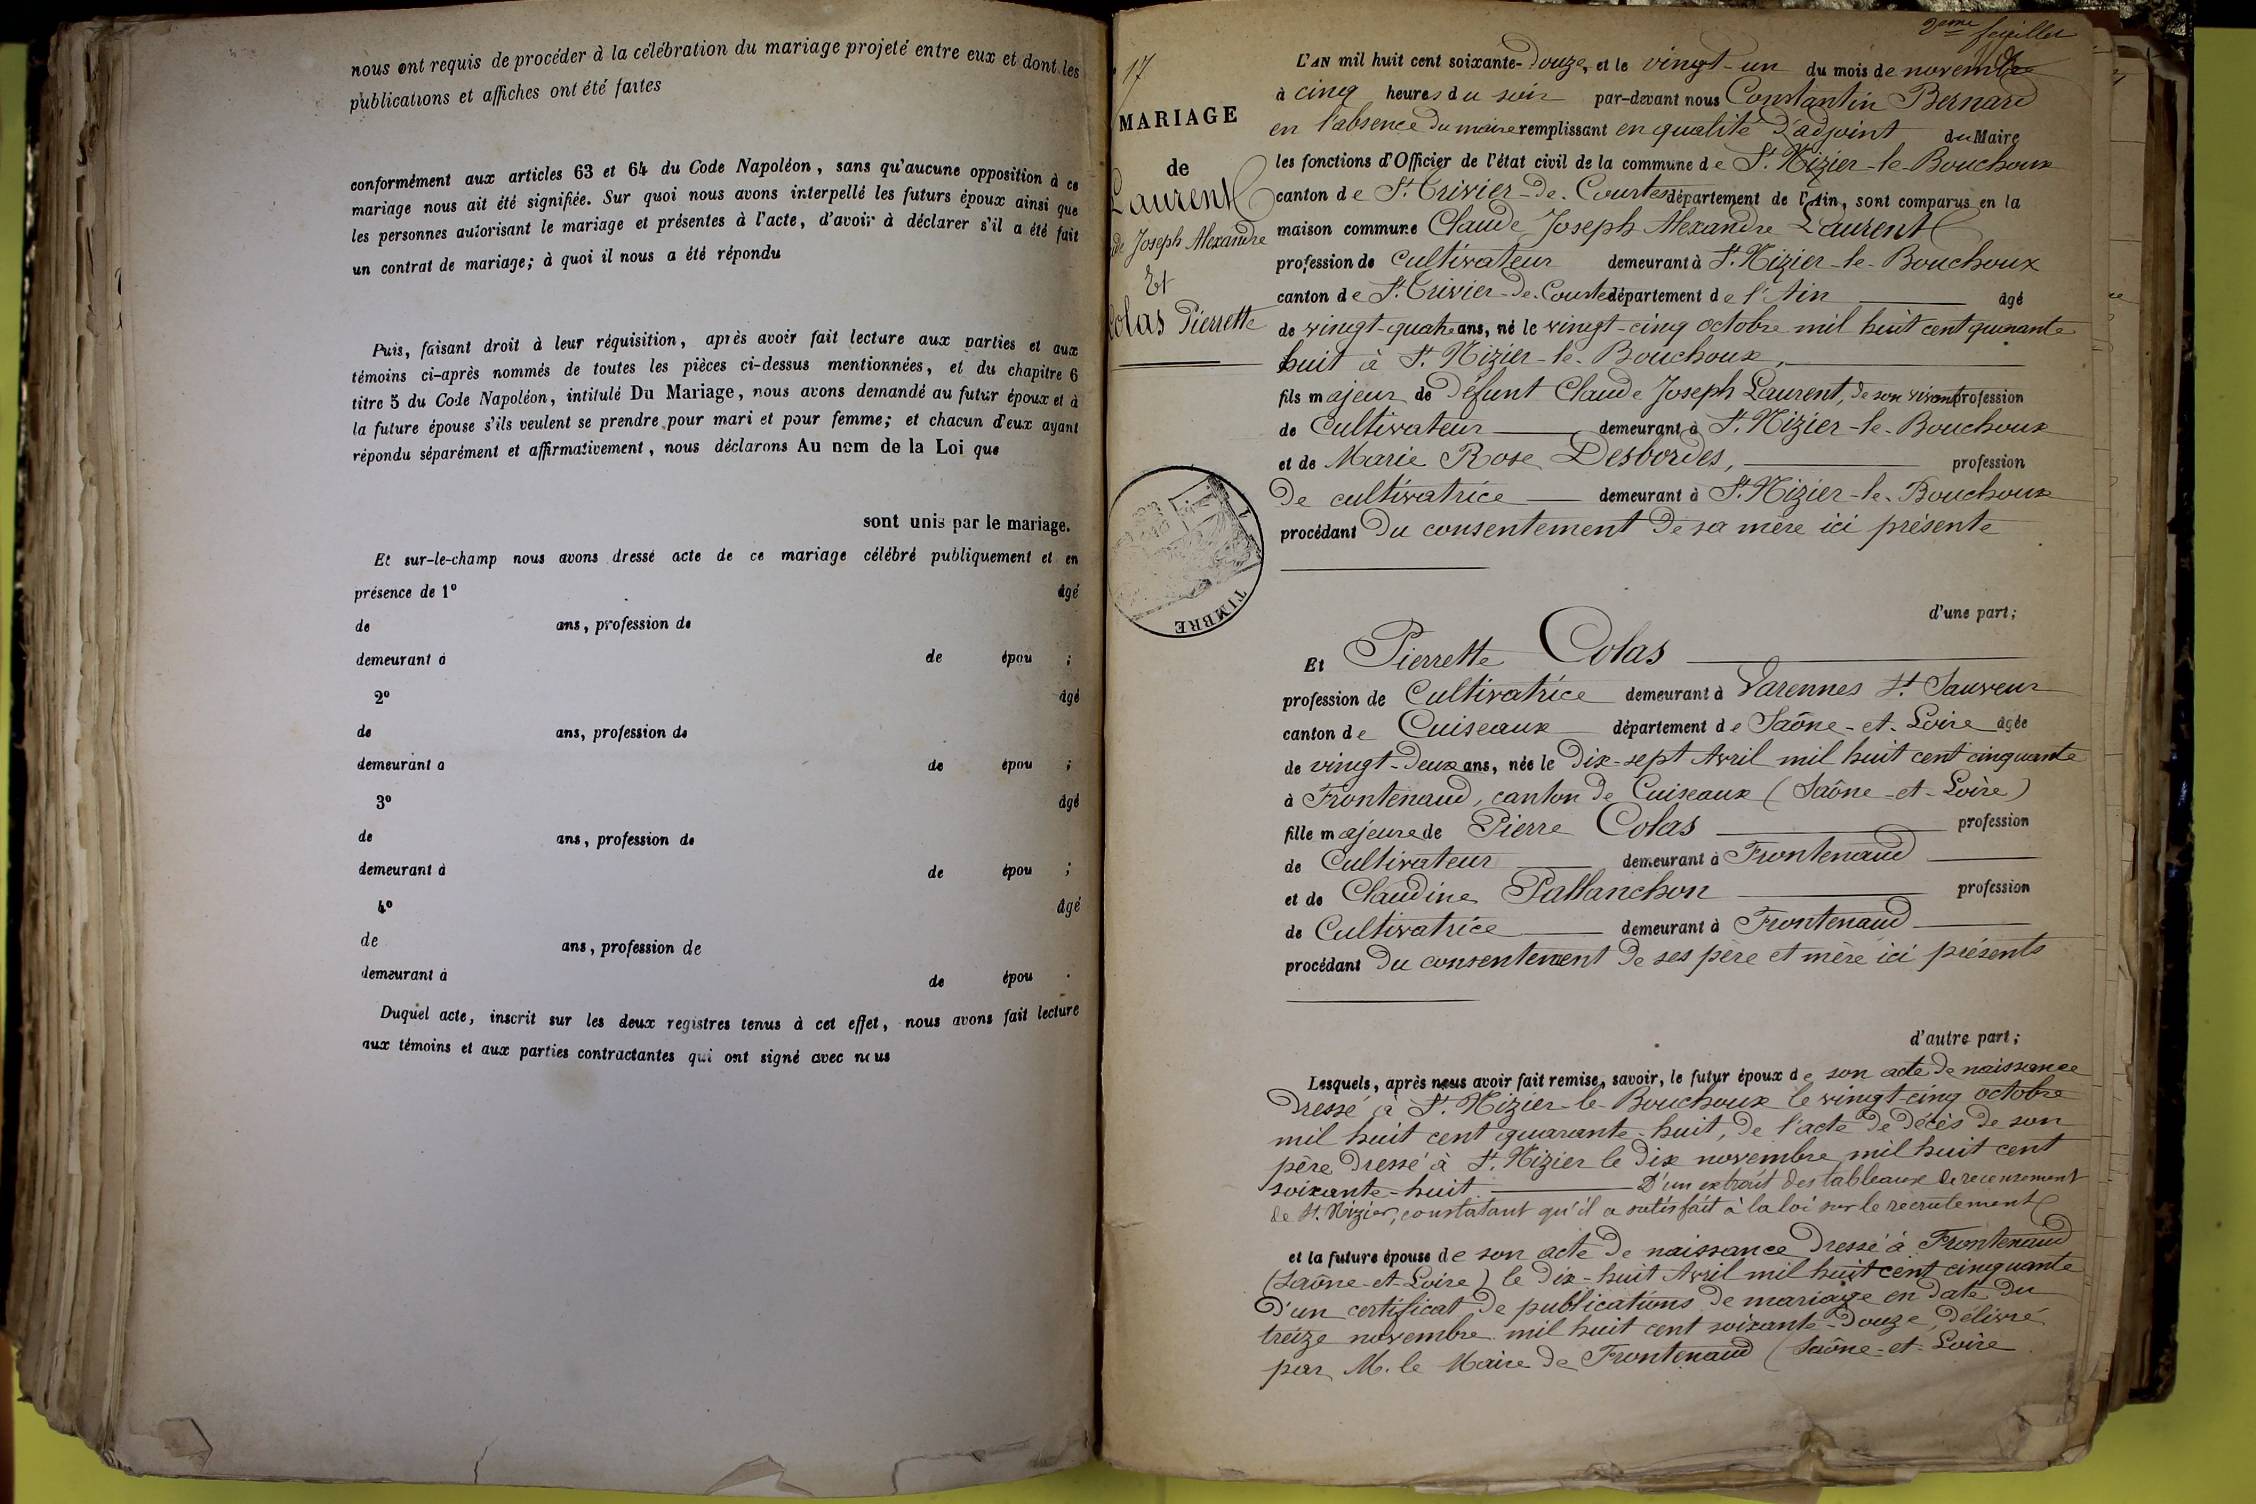 nous ont requis de procéder à la célébration du mariage projeté entre eux et dont les
publications et affiches ont été faites
conformément aux articles 63 et 64 du Code Napoléon, sans qu'aucune opposition à ce
mariage nous ait été signifiée. Sur quoi nous avons interpellé les futurs époux ainsi que
les personnes autorisant le mariage et présentes à l'acte, d'avoir à déclarer s'il a été fait
un contrat de mariage; à quoi il nous a été répondu
Puis, faisant droit à leur réquisition, après avoir fait lecture aux parties et aux
témoins ci-après nommés de toutes les pièces ci-dessus mentionnées, et du chapitre 6
titre 5 du Code Napoléon, intitulé Du Mariage, nous avons demandé au futur époux et à
la future épouse s'ils veulent se prendre pour mari et pour femme; et chacun d'eux ayant
répondu séparément et affirmativement, nous déclarons Au nom de la Loi que
sont unis par le mariage.
Et sur-le-champ nous avons dressé acte de ce mariage célébré publiquement et en
présence de 1° âgé
de ans, profession de
demeurant à de épou ;
2° âgé
de ans, profession de
demeurant a de épou ;
3° âgé
de ans, profession de
demeurant à de épou ;
4° âgé
de ans, profession de
demeurant à de épou .
Duquel acte, inscrit sur les deux registres tenus à cet effet, nous avons fait lecture
aux témoins et aux parties contractantes qui ont signé avec nous
2eme feuillet
17
MARIAGE
de
Laurent
Joseph Alexandre
Et
Colas Pierrette
TIMBRE
L'AN mil huit cent soixante-douze, et le vingt-un du mois de novembre
à cinq heures du soir par-devant nous Constantin Bernard
en l'absence du maire remplissant en qualité d'adjoint du Maire
les fonctions d'Officier de l'état civil de la commune de St Nizier-le-Bouchoux
canton de St Trivier-de-Courtes département de l'Ain, sont comparus en la
maison commune Claude Joseph Alexandre Laurent
profession de cultivateur demeurant à St Nizier-le-Bouchoux
canton de St Trivier-de-Courtes département de l'Ain âgé
de vingt-quatre ans, né le vingt-cinq octobre mil huit cent quarante
huit à St Nizier-le-Bouchoux,
fils majeur de défunt Claude Joseph Laurent, de son vivant profession
de Cultivateur demeurant à St Nizier-le-Bouchoux
et de Marie Rose Desbordes, profession
de cultivatrice demeurant à St Nizier-le-Bouchoux
procédant du consentement de sa mère ici présente
d'une part;
Et Pierrette Colas
profession de Cultivatrice demeurant à Varennes St Sauveur
canton de Cuiseaux département de Saône-et-Loire âgée
de vingt-deux ans, née le dix-sept Avril mil huit cent cinquante
à Frontenaud, canton de Cuiseaux (Saône-et-Loire)
fille majeure de Pierre Colas profession
de Cultivateur demeurant à Frontenaud
et de Claudine Pallanchon profession
de Cultivatrice demeurant à Frontenaud
procédant du consentement de ses père et mère ici présents
d'autre part;
Lesquels, après nous avoir fait remise, savoir, le futur époux de son acte de naissance
dressé à St Nizier-le-Bouchoux le vingt-cinq octobre
mil huit cent quarante-huit, de l'acte de décès de son
père dressé à St Nizier le dix novembre mil huit cent
soixante-huit D'un extrait des tableaux de recensement
de St Nizier, constatant qu'il a satisfait à la loi sur le recrutement
et la future épouse de son acte de naissance dressé à Frontenaud
(Saône-et-Loire) le dix-huit Avril mil huit cent cinquante
D'un certificat de publications de mariage en date du
treize novembre mil huit cent soixante-douze, délivré
par M. le Maire de Frontenaud (Saône-et-Loire